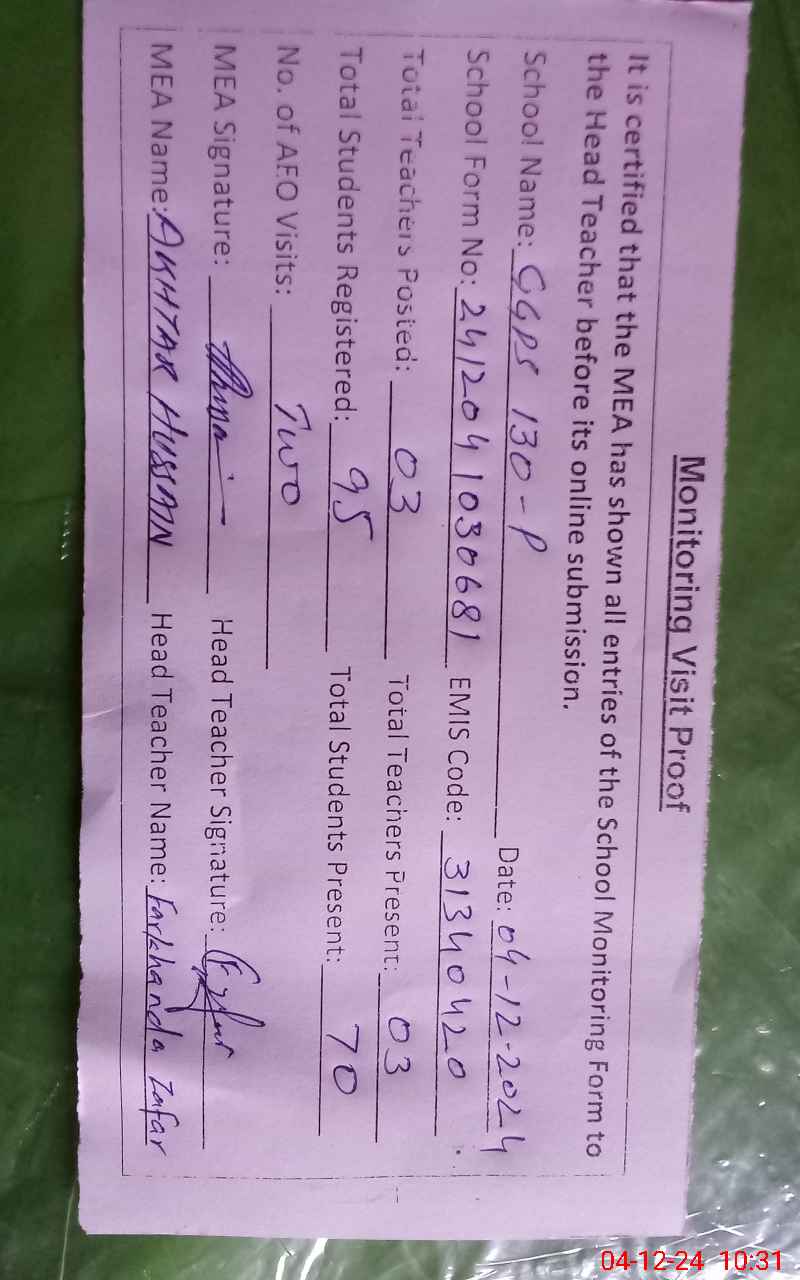 Monitoring Visit Proof
It is certified that the MEA has shown all entries of the School Monitoring Form to
the Head Teacher before its online submission.
School Name: GGPS 130-P Date: 04-12-2024
School Form No: 2412041030681 EMIS Code: 31340420
Total Teachers Posted: 03 Total Teachers Present: 03
Total Students Registered: 95 Total Students Present: 70
No. of AEO Visits: Two
MEA Signature: Head Teacher Signature:
MEA Name: AKHTAR HUSSAIN Head Teacher Name: Farkhanda Zafar
04-12-24 10:31